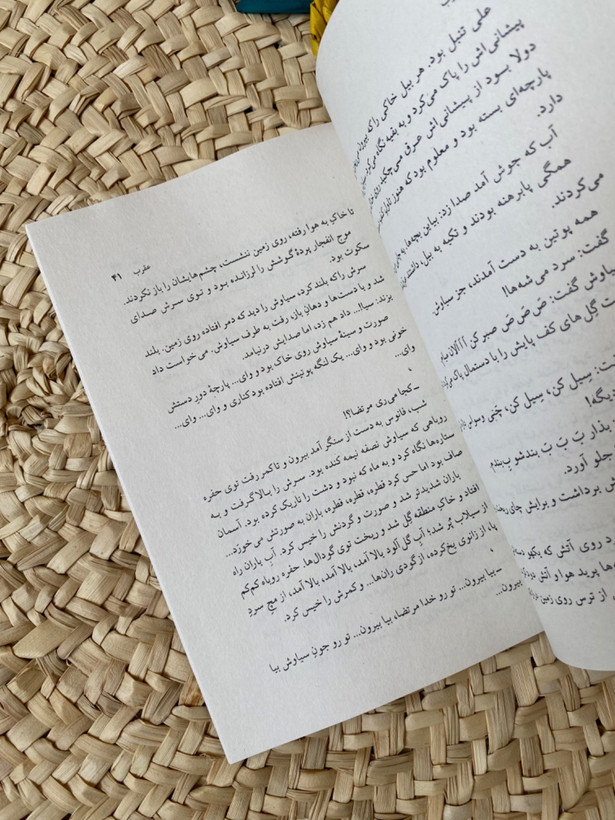 علی تنبل بود. هر بیل خاکی را که
پیشانی‌اش را پاک می‌کرد و به بقیه نگاه
دولا بود از پیشانی‌اش عرق می‌چکید روی
پارچه‌ای بسته بود و معلوم بود که هنوز
دارد.
آب که جرش آمد صدا زد: بیاین بچه‌ها،
همگی پابرهنه بودند و تکیه به بیل،
می‌کردند.
همه پوتین به دست آمدند، جز سیاوش
گفت: سرد می شه‌ها!
سیاوش گفت: ض ض ض صبر کن
گِل‌های کف پایش را با دستمال پاک
گفت: سیل کن، سِیل کن،
دیگه!
بذار بَ بَ بَ بند
جلو آورد.
برداشت و برایش چای
روی آتش که یکهو
پرید هوا و آتش
از ترس روی زمین
عقرب ۴۱
تا خاکِ به هوا رفته، روی زمین ننشست، چشم‌هایشان را باز نکردند.
موج انفجار پردهٔ گوشش را لرزانده بود و توی سرش صدای
سکوت بود.
سرش را که بلند کرد، سیاوش را دید که دمر افتاده روی زمین. بلند
شد و با دست‌ها و دهانِ باز، رفت به طرف سیاوش. می‌خواست داد
بزند: سیا!... داد هم زد، اما صدایش درنیامد.
صورت و سینهٔ سیاوش روی خاک بود و وای... پارچهٔ دورِ دستش
خونی بود و وای... یک لنگه پوتینش افتاده بود کناری و وای... وای...
وای...
ـ کجا می‌ری مرتضا؟!
شب، فانوس به دست از سنگر آمد بیرون و تا کمر رفت توی حفره
روباهی که سیاوش نصفه نیمه کنده بود. سرش را بالا گرفت و به
ستاره‌ها نگاه کرد و به ماه که نبود و دشت را تاریک کرده بود. آسمان
صاف بود اما حس کرد قطره، قطره، قطره، باران به صورتش می‌خورد...
باران شدیدتر شد و صورت و گردنش را خیس کرد. آبِ باران راه
افتاد و خاکِ منطقه گِل شد و ریخت توی گودال‌ها. حفره روباه کم‌کم
از سیلاب پر شد؛ آب گل‌آلود بالا آمد، بالا آمد، بالا آمد، از مچِ سردِ
پا، از زانوی یخ‌کرده، از گودی ران‌ها... و کمرش را خیس کرد.
ـ بیا بیرون... تو رو خدا مرتضا، بیا بیرون... تو رو جون سیاوش بیا
بیرون...